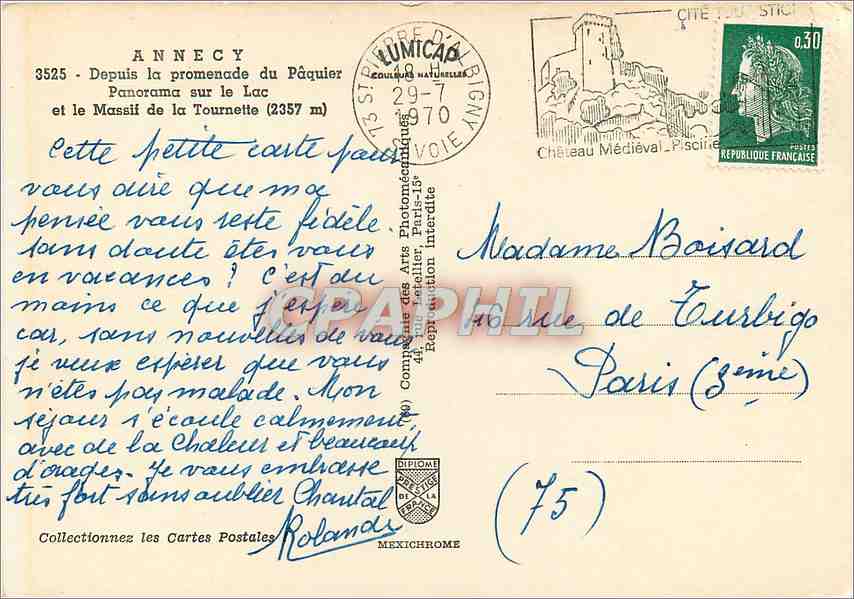 ANNECY
3525 - Depuis la promenade du Pâquier
Panorama sur le Lac
et le Massif de la Tournette (2357 m)
Cette petite carte pour
vous dire que ma
pensée vous reste fidèle.
sans doute êtes vous
en vacances ? C'est du
moins ce que j'espère
car, sans nouvelles de vous
je veux espérer que vous
n'êtes pas malade. Mon
séjour s'écoule calmement,
avec de la Chaleur et beaucoup
d'orages. Je vous embrasse
très fort sans oublier Chantal
Rolande
Collectionnez les Cartes Postales
LUMICAP
COULEURS NATURELLES
73 ST PIERRE D'ALBIGNY
18 H
29-7
1970
SAVOIE
CITE TOURISTIQ
Château Médiéval - Piscine
0,30
POSTES
REPUBLIQUE FRANÇAISE
Compagnie des Arts Photomécaniques
44, rue Letellier, Paris-15e
Reproduction interdite
CPAPHIL
Madame Boisard
16 rue de Turbigo
Paris (3ème)
(75)
DIPLOME
PRESTIGE
DE LA
FRANCE
MEXICHROME